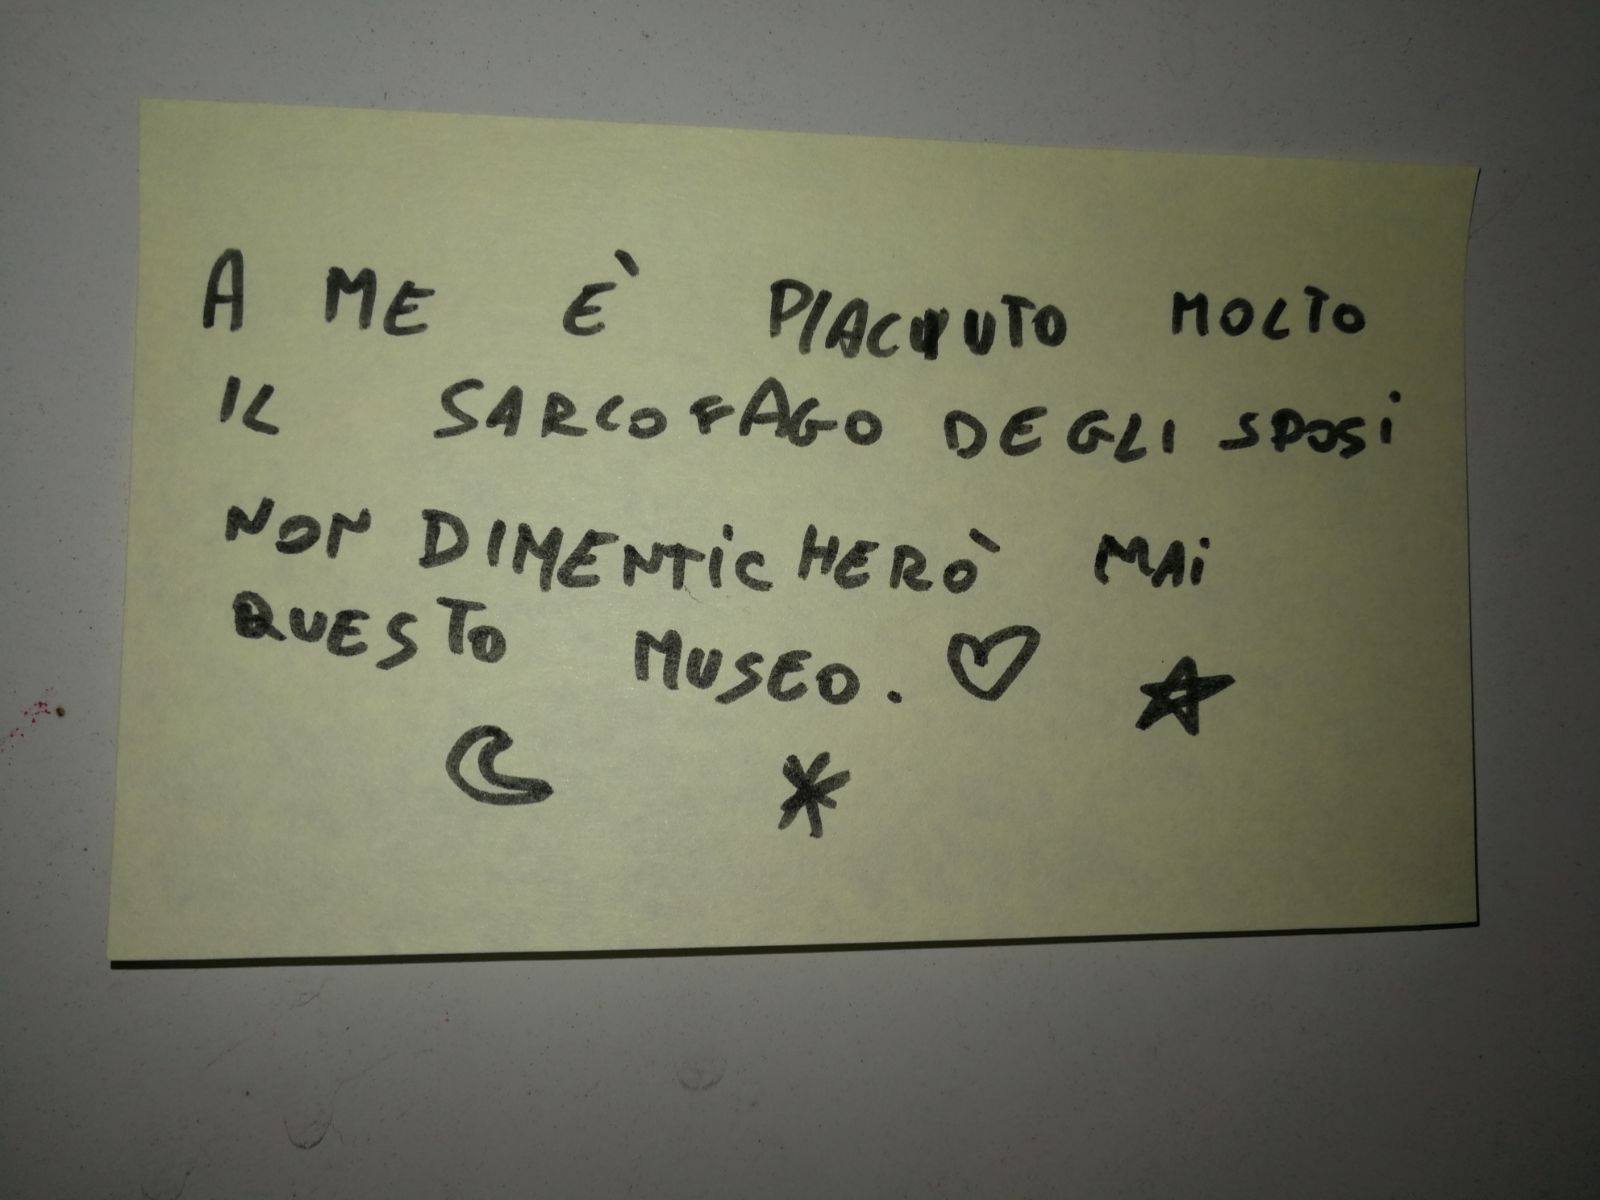 A ME È PIACIUTO MOLTO
IL SARCOFAGO DEGLI SPOSI
NON DIMENTICHERÒ MAI
QUESTO MUSEO.